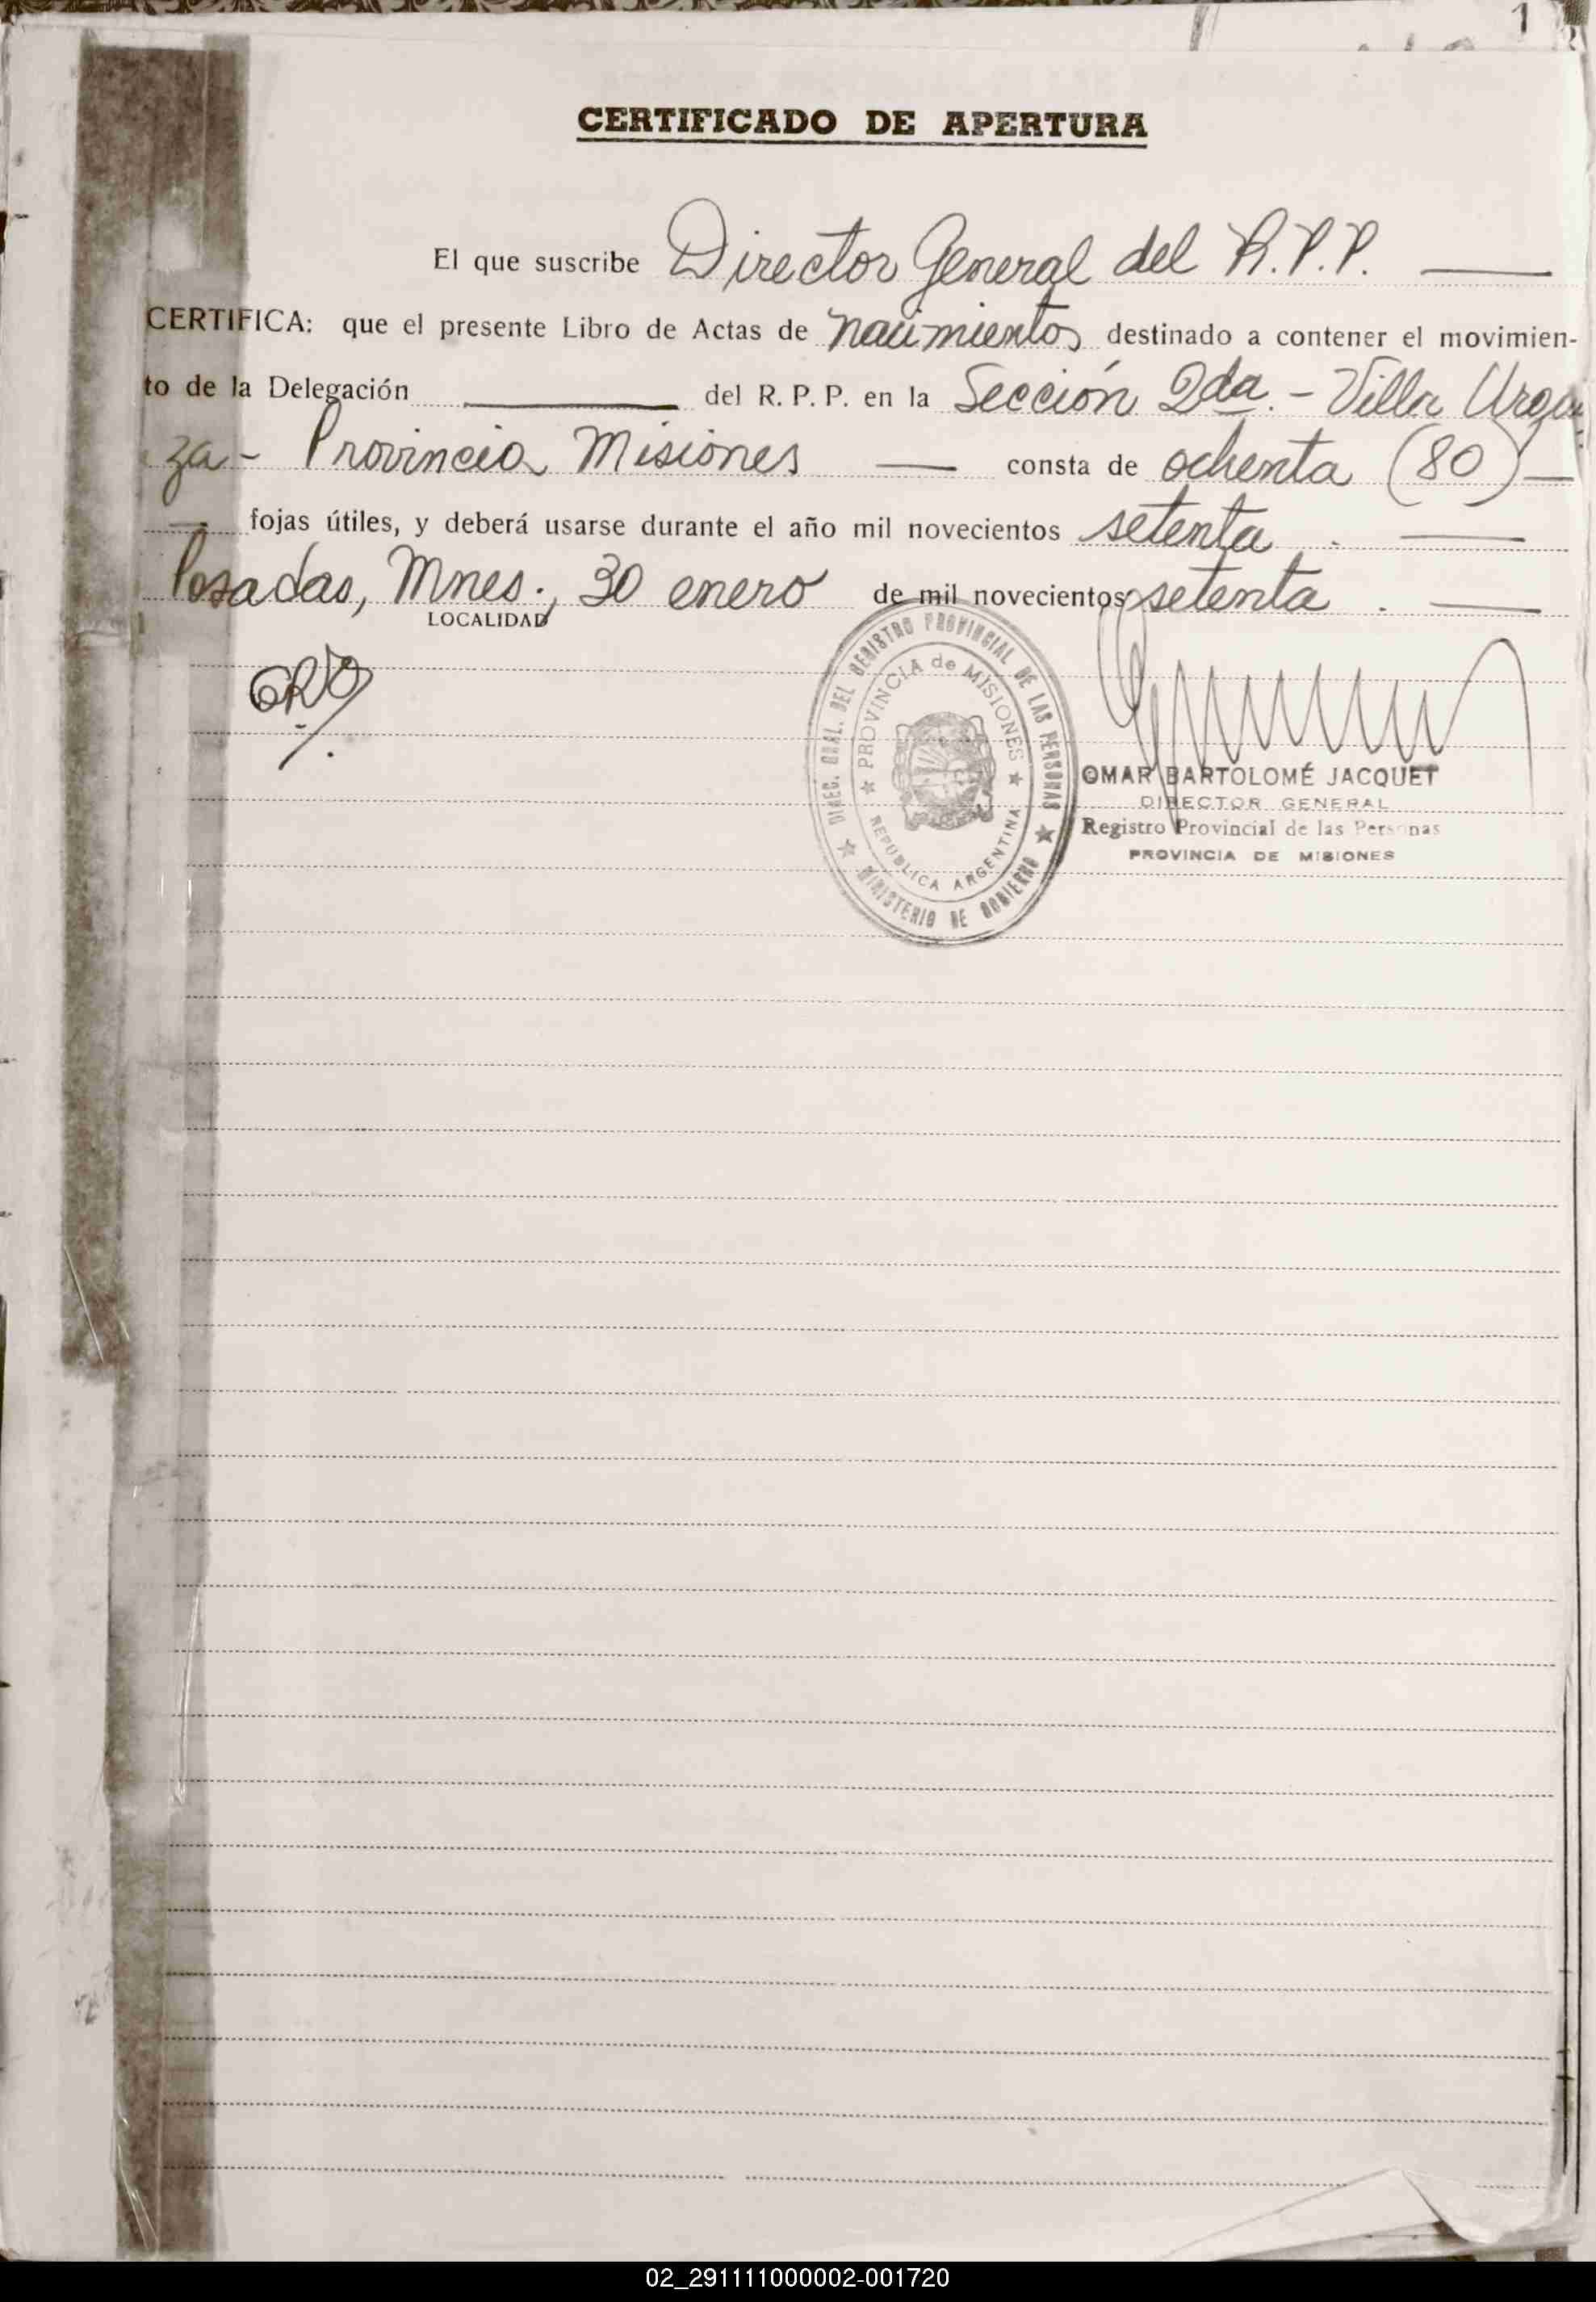 1
CERTIFICADO DE APERTURA
El que suscribe Director General del R.P.P.
CERTIFICA: que el presente Libro de Actas de nacimientos destinado a contener el movimien-
to de la Delegación del R. P. P. en la Sección 2da. - Villa Urqui
za - Provincia Misiones consta de ochenta (80)
fojas útiles, y deberá usarse durante el año mil novecientos setenta.
Posadas, Mnes., 30 enero de mil novecientos setenta.
LOCALIDAD
DIREC. GRAL. DEL REGISTRO PROVINCIAL DE LAS PERSONAS
PROVINCIA de MISIONES
REPUBLICA ARGENTINA
MINISTERIO DE GOBIERNO
OMAR BARTOLOMÉ JACQUET
DIRECTOR GENERAL
Registro Provincial de las Personas
PROVINCIA DE MISIONES
02_291111000002-001720